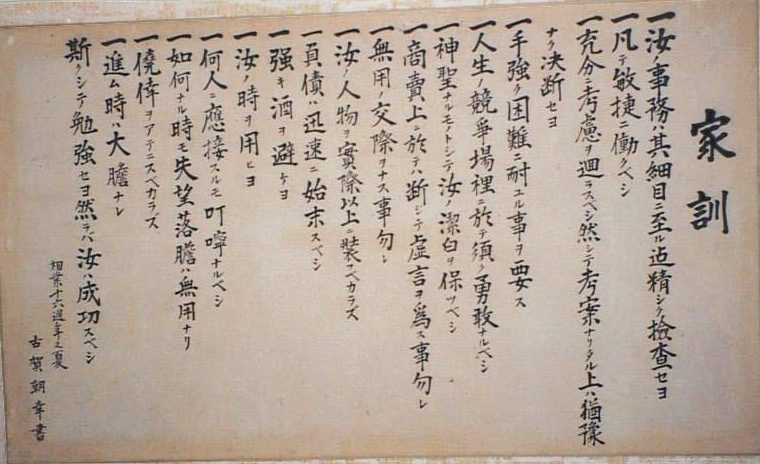 家訓
一汝ノ事務ハ其細目ニ至ル迠精シク檢査セヨ
一凡テ敏捷ニ働クベシ
一充分ニ考慮ヲ廻ラスベシ然シテ考案ナリタル上ハ猶豫
ナク決断セヨ
一手強ク困難ニ耐ユル事ヲ要ス
一人生ノ競爭場裡ニ於テ須ク勇敢ナルベシ
一神聖ナルモノトシテ汝ノ潔白ヲ保ツベシ
一商賣上ニ於テハ断シテ虚言ヲ爲ス事勿レ
一無用ノ交際ヲナス事勿レ
一汝ノ人物ヲ實際以上ニ裝フベカラズ
一負債ハ迅速ニ始末スベシ
一强キ酒ヲ避ケヨ
一汝ノ時ヲ用ヒヨ
一何人ニ應接スルモ叮嚀ナルベシ
一如何ナル時モ失望落膽ハ無用ナリ
一僥倖ヲアテニスベカラズ
一進ム時ハ大膽ナレ
斯クシテ勉強セヨ然ラバ汝ハ成功スベシ
業十六週年之夏
古賀朝幸書